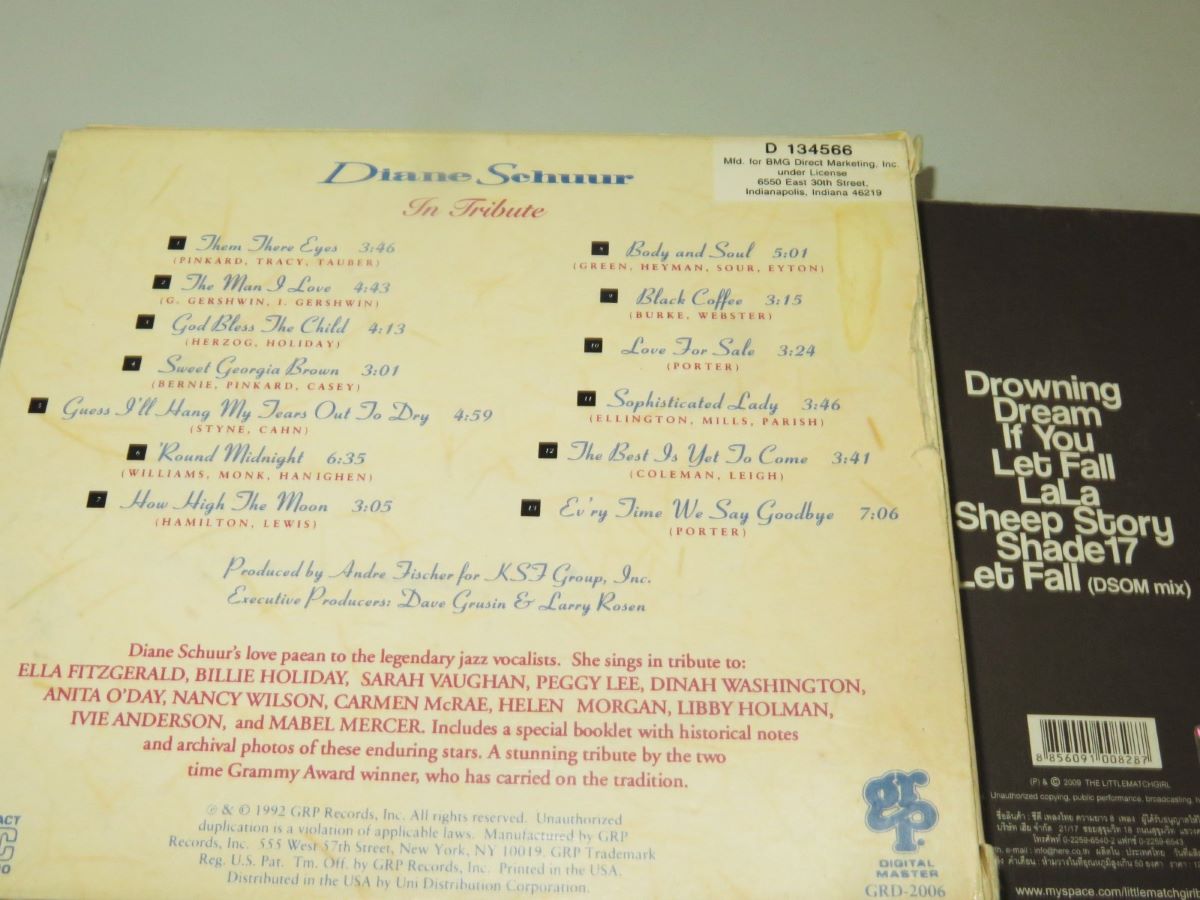 D 134566
Mfd. for BMG Direct Marketing, Inc.
under License
6550 East 30th Street,
Indianapolis, Indiana 46219
Diane Schuur
In Tribute
1 Them There Eyes 3:46
(PINKARD, TRACY, TAUBER)
2 The Man I Love 4:43
(G. GERSHWIN, I. GERSHWIN)
3 God Bless The Child 4:13
(HERZOG, HOLIDAY)
4 Sweet Georgia Brown 3:01
(BERNIE, PINKARD, CASEY)
5 Guess I'll Hang My Tears Out To Dry 4:59
(STYNE, CAHN)
6 'Round Midnight 6:35
(WILLIAMS, MONK, HANIGHEN)
7 How High The Moon 3:05
(HAMILTON, LEWIS)
8 Body and Soul 5:01
(GREEN, HEYMAN, SOUR, EYTON)
9 Black Coffee 3:15
(BURKE, WEBSTER)
10 Love For Sale 3:24
(PORTER)
11 Sophisticated Lady 3:46
(ELLINGTON, MILLS, PARISH)
12 The Best Is Yet To Come 3:41
(COLEMAN, LEIGH)
13 Ev'ry Time We Say Goodbye 7:06
(PORTER)
Produced by Andre Fischer for KSF Group, Inc.
Executive Producers: Dave Grusin & Larry Rosen
Diane Schuur's love paean to the legendary jazz vocalists. She sings in tribute to:
ELLA FITZGERALD, BILLIE HOLIDAY, SARAH VAUGHAN, PEGGY LEE, DINAH WASHINGTON,
ANITA O'DAY, NANCY WILSON, CARMEN McRAE, HELEN MORGAN, LIBBY HOLMAN,
IVIE ANDERSON, and MABEL MERCER. Includes a special booklet with historical notes
and archival photos of these enduring stars. A stunning tribute by the two
time Grammy Award winner, who has carried on the tradition.
℗ & © 1992 GRP Records, Inc. All rights reserved. Unauthorized
duplication is a violation of applicable laws. Manufactured by GRP
Records, Inc. 555 West 57th Street, New York, NY 10019. GRP Trademark
Reg. U.S. Pat. Tm. Off. by GRP Records, Inc. Printed in the USA.
Distributed in the USA by Uni Distribution Corporation.
grp
DIGITAL
MASTER
GRD-2006
Drowning
Dream
If You
Let Fall
LaLa
Sheep Story
Shade17
Let Fall (DSOM mix)
8 856091 008287
(P) & © 2009 THE LITTLEMATCHGIRL
Unauthorized copying, public performance, broadcasting,
ชื่อสินค้า : ซีดี เพลงไทย ความยาว 8 เพลง
21/17 ซอยสุขุมวิท 18 ถนนสุขุมวิท
โทรศัพท์ 0-2259-6540-2 แฟกซ์ 0-2259-6543
e-mail : info@here.co.th ผลิตใน : ประเทศไทย
คำเตือน : ห้ามวางในที่อุณหภูมิสูงเกิน 50 องศา
www.myspace.com/littlematchgirl